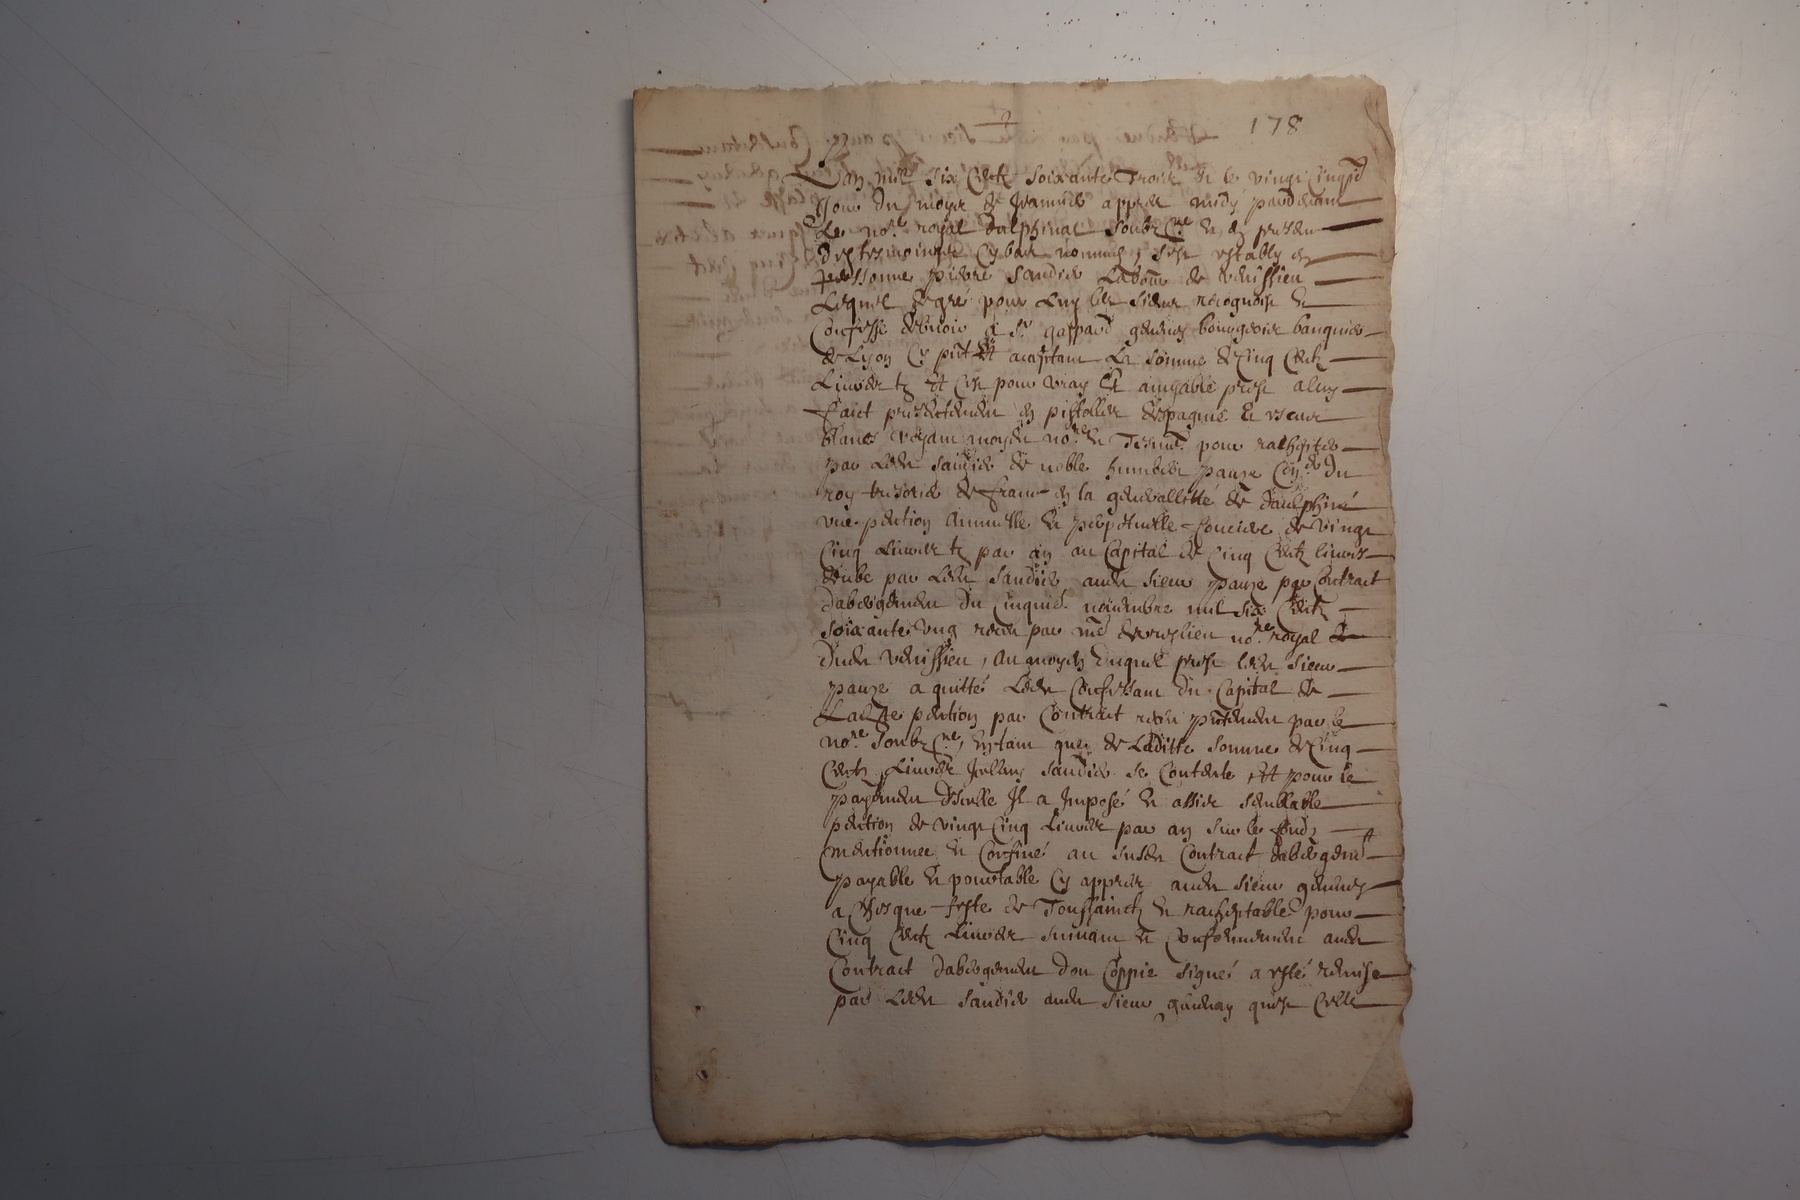 178
Lan mil six centz soixante trois et le vingt cinqe
Jour du moys de Janvier appres midy pardevant
Le nore royal dalphinal soubzne et en presence
des tesmoingz cy bas nommes, sest estably en
personne pierre Sandier Labour de venissieu
Lequel de gré pour luy les siens recognoist et
Confesse debvoir a Sr gaspard bourgeois banquier
de Lyon cy pnt et acceptant La somme de Cinq Centz
Livres tz Et cest pour vray Et amyable prest a luy
faict presentement en pistolles despagne et escus
blancs voyant moydit nore et tesmt pour rachepter
par Ledit Sandier de noble humbert pauze Coner du
roy tresorier de france en la generallitté de daulphiné
une pention annuelle et perpetuelle fonciere de vingt
Cinq Livres tz par an au Capital de Cinq Centz livres
deube par Ledit Sandier audit sieur pauze par Contract
dabergement du cinquie novembre mil six Centz
soixante ung receu par me nore royal
dudit venissieu, Au moyen duquel prest ledit sieur
pauze a quitté Ledit Confessant du Capital de
Ladite pention par Contract receu pntement par le
nore soubzne, Estant que de Laditte somme de Cinq
Centz Livres Icelluy Sandier se Contente Et pour le
payement dicelle Il a Imposé et assise semblable
pention de vingt Cinq Livres par an sur le fondz
mentionnee et Confiné au susdit Contract dabergemt
payable et pourtable cy appres audit sieur
a Chesque feste de Toussainctz et racheptable pour
Cinq Centz Livres suivant et Conformement audit
Contract dabergement dou Coppie signé a esté remise
par Ledit Sandier audit sieur quest Celle